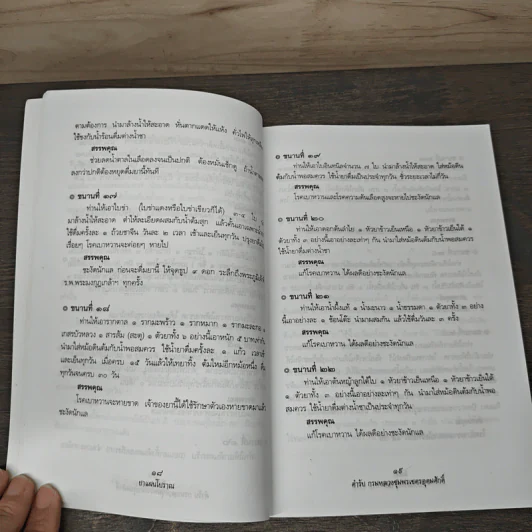 ตามต้องการ นำมาล้างน้ำให้สะอาด หั่นตากแดดให้แห้ง คั่วไฟให้
ใช้ชงกับน้ำร้อนดื่มต่างน้ำชา
สรรพคุณ
ช่วยลดน้ำตาลในเลือดลงจนเป็นปกติ ต้องหมั่นเช็กดู ถ้าน้ำตาล
ลงกว่าปกติต้องหยุดดื่มยานี้ทันที
๏ ขนานที่ ๑๗
ท่านให้เอาใบชำ (ใบชำแดงหรือใบชำเขียวก็ได้) ๓-๔ ใบ
มาล้างน้ำให้สะอาด ตำให้ละเอียดผสมกับน้ำต้มสุก แล้วคั้นเอา
ใช้ดื่มครั้งละ ๑ ถ้วยชาจีน วันละ ๒ เวลา เช้าและเย็นทุกวัน
เรื่อยๆ โรคเบาหวานจะค่อยๆ หายไป
สรรพคุณ
ชะงัดนักแล ก่อนจะดื่มยานี้ ให้จุดธูป ๙ ดอก ระลึกถึง
ร.พ.พระมงกุฎเกล้าฯ ทุกครั้ง
๏ ขนานที่ ๑๘
ท่านให้เอารากตาล ๑ รากมะพร้าว ๑ รากหมาก ๑
เกสรบัวหลวง ๑ สารส้ม (สะตุ) ๑ ตัวยาทั้ง ๖ อย่างนี้เอาหนัก ๕ บาทเท่ากัน
นำมาใส่หม้อดินต้มกับน้ำพอสมควร ใช้น้ำยาดื่มครั้งละ ๑ แก้ว เวลาเช้า
และเย็นทุกวัน เมื่อครบ ๑๕ วันแล้วให้เทยาทิ้ง ต้มใหม่อีกหม้อหนึ่ง
ทุกวันจนครบ ๓๐ วัน
สรรพคุณ
โรคเบาหวานจะหายขาด เจ้าของยานี้ได้ใช้รักษาตัวเองหายขาดมาแล้ว
ชะงัดนักแล
๑๘
ยาแผนโบราณ
๏ ขนานที่ ๑๙
ท่านให้เอาใบอินทนิลจำนวน ๗ ใบ นำมาล้างน้ำให้สะอาด ใส่หม้อดิน
ต้มกับน้ำพอสมควร ใช้น้ำยาดื่มเป็นประจำทุกวัน ชั่วระยะเวลาไม่กี่วัน
สรรพคุณ
โรคเบาหวานและโรคความดันเลือดสูงจะหายไปชะงัดนักแล
๏ ขนานที่ ๒๐
ท่านให้เอาดอกต้นลำโพง ๑ หัวยาข้าวเย็นเหนือ ๑ หัวยาข้าวเย็นใต้ ๑
ตัวยาทั้ง ๓ อย่างนี้เอาอย่างละเท่าๆ กัน นำมาใส่หม้อดินต้มกับน้ำพอสมควร
ใช้น้ำยาดื่มต่างน้ำชา
สรรพคุณ
แก้โรคเบาหวาน ได้ผลดีอย่างชะงัดนักแล
๏ ขนานที่ ๒๑
ท่านให้เอาน้ำผึ้งแท้ ๑ น้ำมะนาว ๑ น้ำธรรมดา ๑ ตัวยาทั้ง ๓ อย่าง
นี้เอาอย่างละ ๑ ช้อนโต๊ะ นำมาผสมกัน แล้วใช้ดื่มวันละ ๓ ครั้ง
สรรพคุณ
แก้โรคเบาหวาน ได้ผลดีอย่างชะงัดนักแล
๏ ขนานที่ ๒๒
ท่านให้เอาต้นหญ้าลูกใต้ใบ ๑ หัวยาข้าวเย็นเหนือ ๑ หัวยาข้าวเย็นใต้
๑ ตัวยาทั้ง ๓ อย่างนี้เอาอย่างละเท่าๆ กัน นำมาใส่หม้อดินต้มกับน้ำพอ
สมควร ใช้น้ำยาดื่มต่างน้ำชาเป็นประจำทุกวัน
สรรพคุณ
แก้โรคเบาหวาน ได้ผลดีอย่างชะงัดนักแล
๑๙
ตำรับ กรมหลวงชุมพรเขตรอุดมศักดิ์